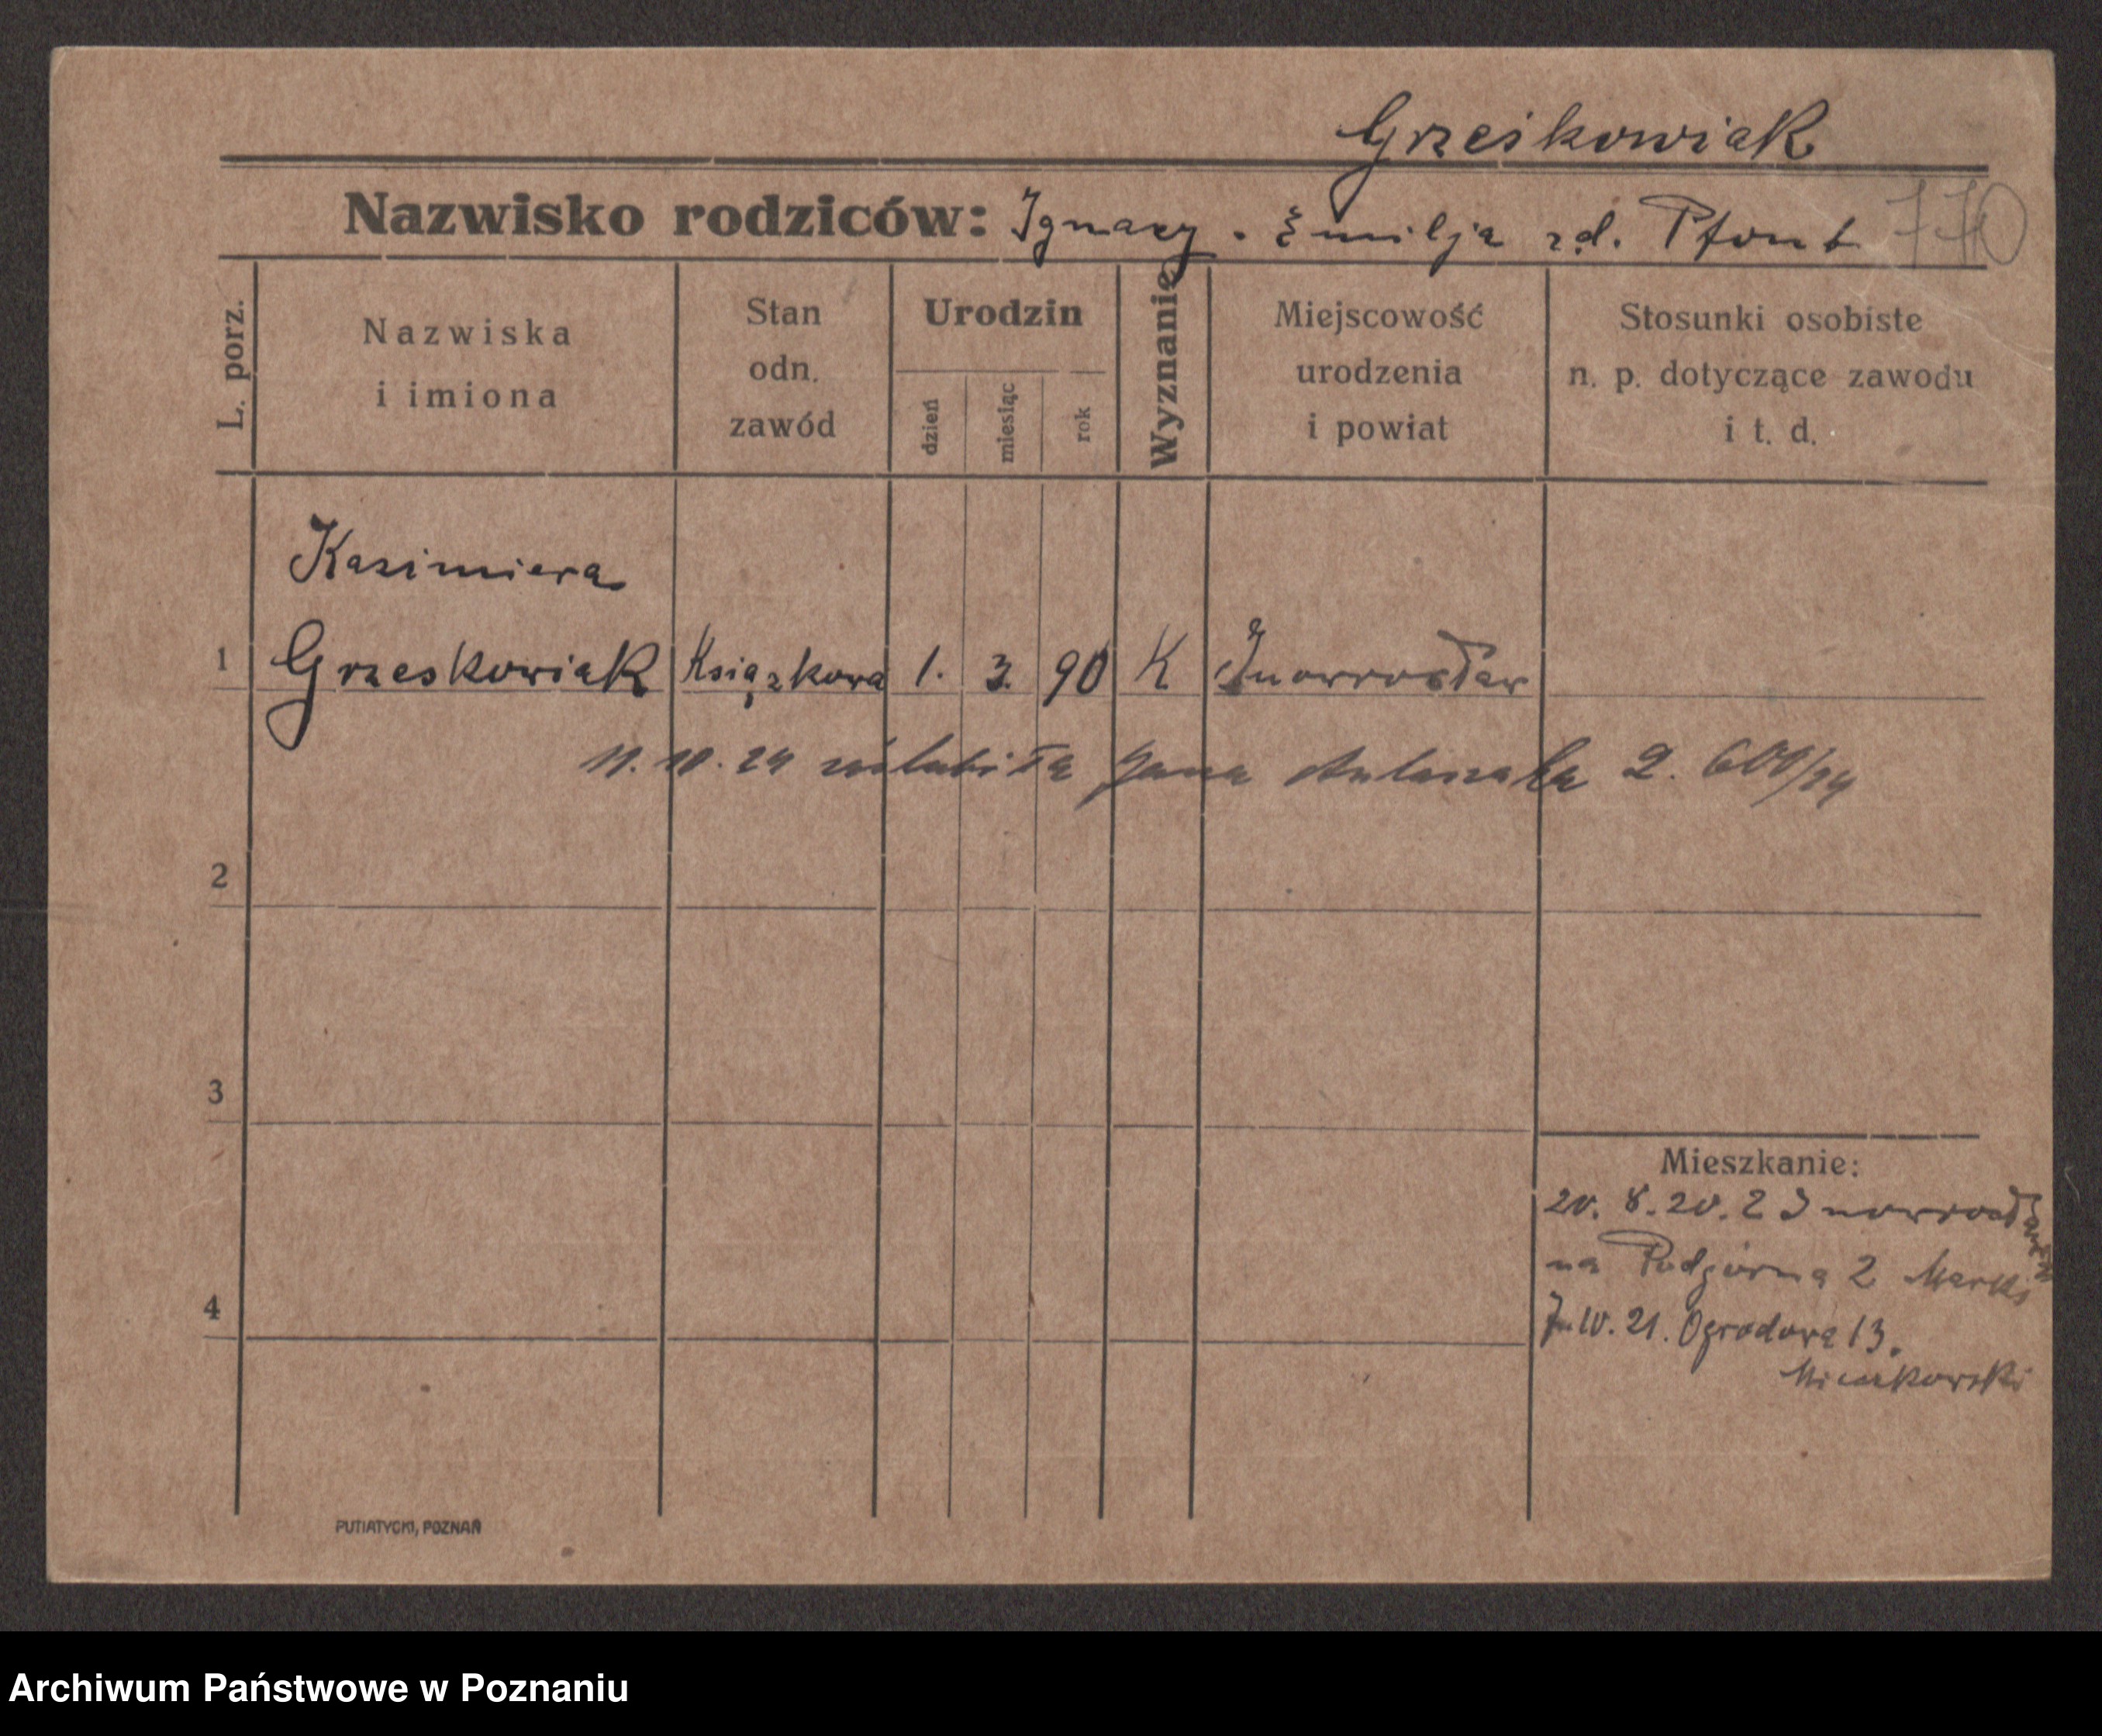 Grześkowiak
Nazwisko rodziców: Ignacy. Emilja zd. Pfont
L. porz.
Nazwiska
i imiona
Stan
odn.
zawód
Urodzin
dzień
miesiąc
rok
Wyznanie
Miejscowość
urodzenia
i powiat
Stosunki osobiste
n. p. dotyczące zawodu
i t. d.
Kazimiera
1 Grzeskowiak Książkowa 1. 3. 90 K Inowrocław
11. 10. 24 zaślubiła Jana
2
3
Mieszkanie:
20. 8. 20. z Inowrocławia
na Podgórną 2
4
10. 21. Ogrodowa 13.
PUTIATYCKI, POZNAŃ
Archiwum Państwowe w Poznaniu